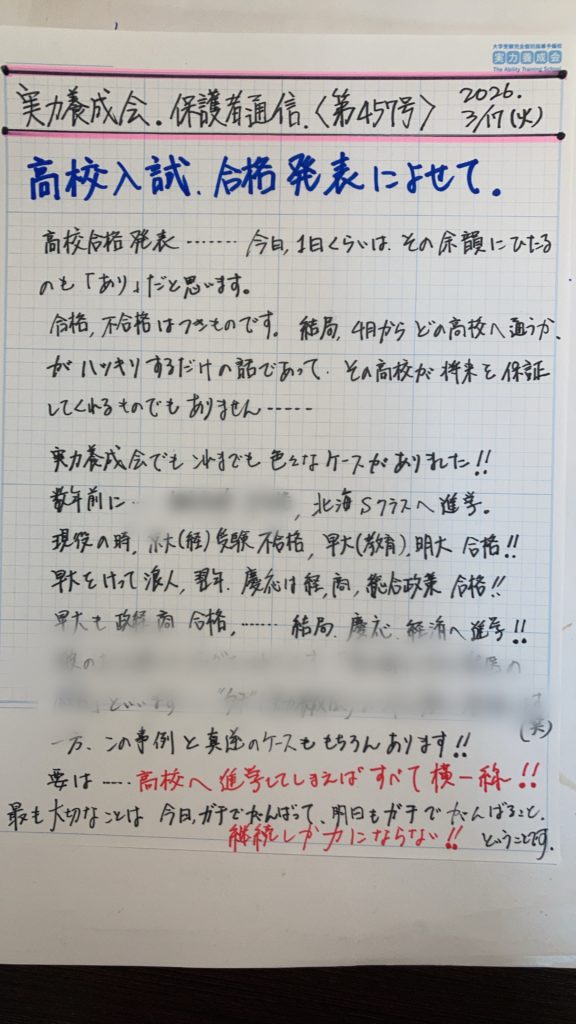 大学受験完全個別指導予備校
実力養成会
The Ability Training School
実力養成会.保護者通信.〈第457号〉 2026. 3/17(火)
高校入試.合格発表によせて.
高校合格発表‥‥‥‥今日,1日くらいは.その余韻にひたる
のも「あり」だと思います。
合格,不合格はつきものです。結局,4月からどの高校へ通うか、
がハッキリするだけの話であって.その高校が将来を保証
してくれるものでもありません‥‥‥
実力養成会でもこれまでも色々なケースがありました!!
数年前に‥ , 北海Sクラスへ進学。
現役の時, 大(経)受験不合格, 早大(教育),明大 合格!!
早大をけって浪人, 翌年.慶応は経,商,総合政策 合格!!
早大も政経 商 合格,‥‥‥結局.慶応.経済へ進学!!
(笑)
一方、この事例と真逆のケースももちろんあります!!
要は‥‥高校へ進学してしまえばすべて横一線!!
最も大切なことは 今日,ガチでがんばって、明日もガチでがんばること.
継続しか力にならない!! ということです.